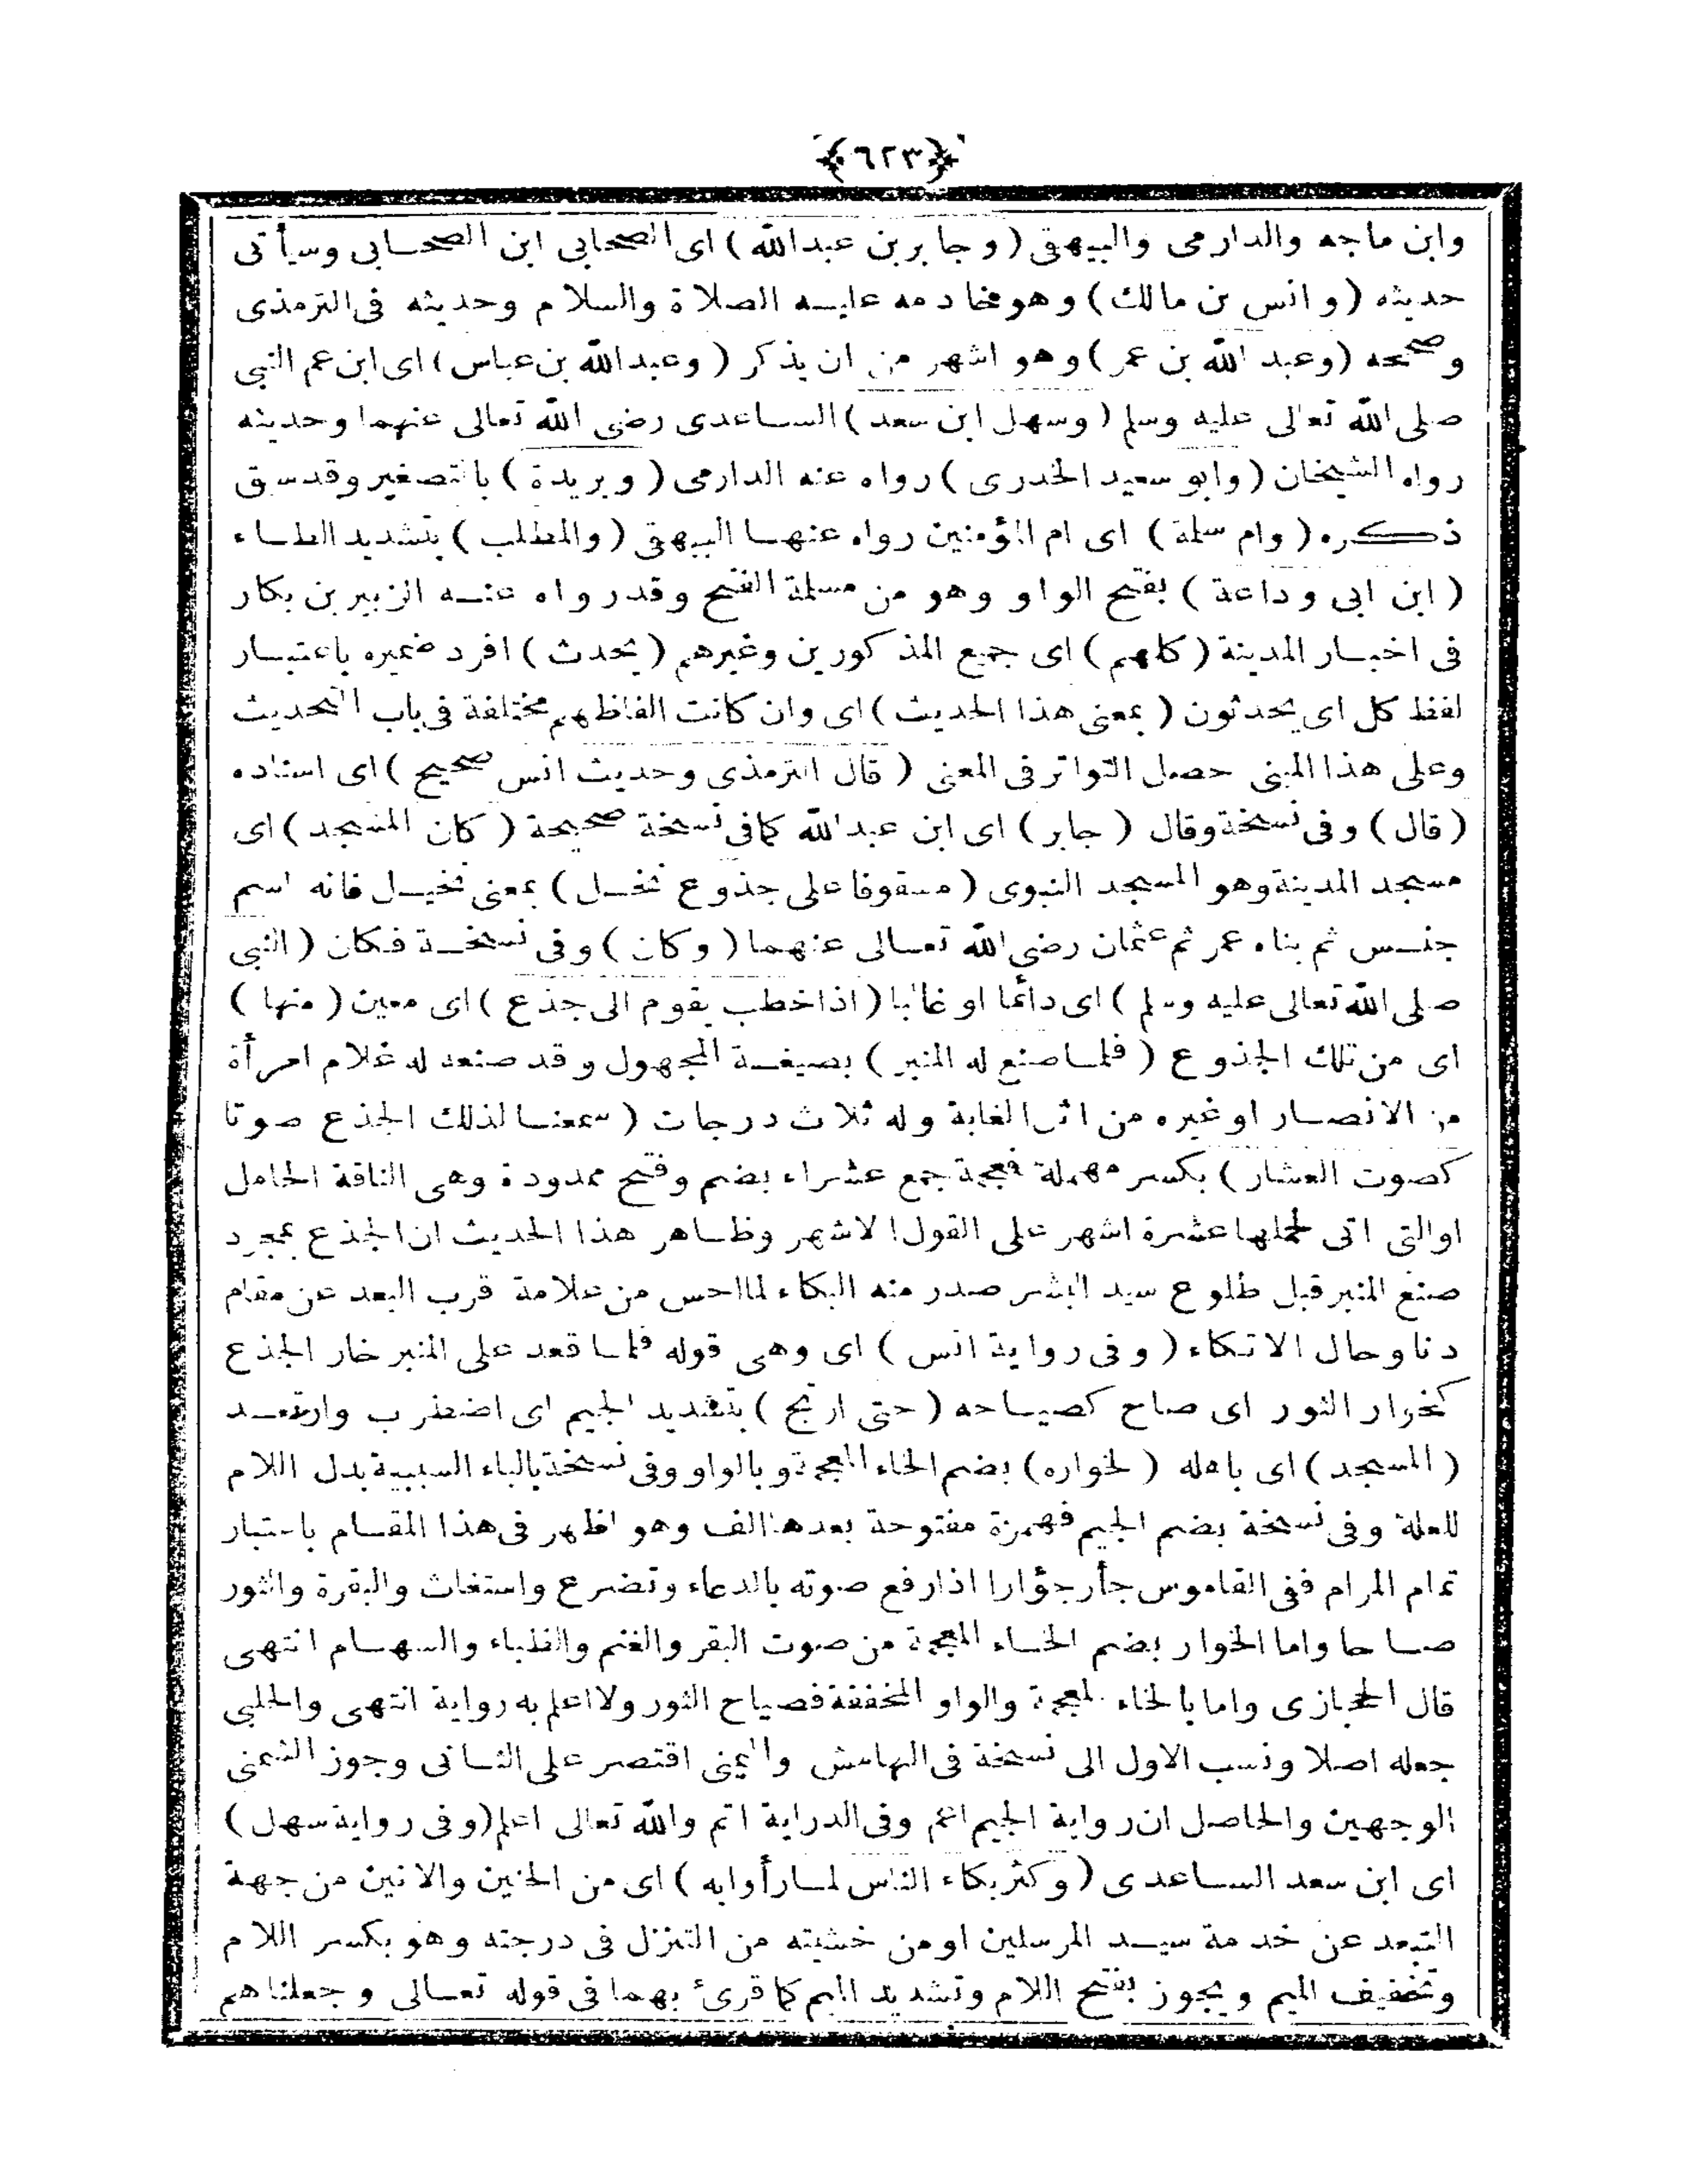 ﴿٦٢٣﴾
وابن ماجه والدارمى والبيهقى (وجابر بن عبدالله) اى الصحابى ابن الصحابى وسيأتى
حديثه (وانس بن مالك) وهو خادمه عليه الصلاة والسلام وحديثه فى الترمذى
وصححه (وعبد الله بن عمر) وهو اشهر من ان يذكر (وعبدالله بن عباس) اى ابن عم النبى
صلى الله تعالى عليه وسلم (وسهل ابن سعد) الساعدى رضى الله تعالى عنهما وحديثه
رواه الشيخان (وابو سعيد الخدرى) رواه عنه الدارمى (وبريدة) بالتصغير وقد سبق
ذكره (وام سلمة) اى ام المؤمنين رواه عنها البيهقى (والمطلب) بتشديد الطاء
(ابن ابى وداعة) بفتح الواو وهو من مسلمة الفتح وقد رواه عنه الزبير بن بكار
فى اخبار المدينة (كلهم) اى جميع المذكورين وغيرهم (يحدث) افرد ضميره باعتبار
لفظ كل اى يحدثون (بمعنى هذا الحديث) اى وان كانت الفاظهم مختلفة فى باب التحديث
وعلى هذا المبنى حصل التواتر فى المعنى (قال الترمذى وحديث انس صحيح) اى اسناده
(قال) وفى نسخة وقال (جابر) اى ابن عبدالله كما فى نسخة صحيحة (كان المسجد) اى
مسجد المدينة وهو المسجد النبوى (مسقوفا على جذوع نخل) بمعنى نخيل فانه اسم
جنس ثم بناه عمر ثم عثمان رضى الله تعالى عنهما (وكان) وفى نسخة فكان (النبى
صلى الله تعالى عليه وسلم) اى دائما او غالبا (اذا خطب يقوم الى جذع) اى معين (منها)
اى من تلك الجذوع (فلما صنع له المنبر) بصيغة المجهول وقد صنعه له غلام امرأة
من الانصار او غيره من اثل الغابة وله ثلاث درجات (سمعنا لذلك الجذع صوتا
كصوت العشار) بكسر مهملة فمعجمة جمع عشراء بضم وفتح ممدودة وهى الناقة الحامل
او التى اتى لحملها عشرة اشهر على القول الاشهر وظاهر هذا الحديث ان الجذع بمجرد
صنع المنبر قبل طلوع سيد البشر صدر منه البكاء لما احس من علامة قرب البعد عن مقام
دنا وحال الاتكاء (وفى رواية انس) اى وهى قوله فلما قعد على المنبر خار الجذع
كخوار الثور اى صاح كصياحه (حتى ارتج) بتشديد الجيم اى اضطرب وارتعد
(المسجد) اى باهله (لخواره) بضم الخاء المعجمة وبالواو وفى نسخة بالباء السببية بدل اللام
للعلة وفى نسخة بضم الجيم فهمزة مفتوحة بعدها الف وهو اظهر فى هذا المقام باعتبار
تمام المرام ففى القاموس جأر جؤارا اذا رفع صوته بالدعاء وتضرع واستغاث والبقرة والثور
صاحا واما الخوار بضم الخاء المعجمة من صوت البقر والغنم والظباء والسهام انتهى
قال الحجازى واما بالخاء المعجمة والواو المخففة فصياح الثور ولا اعلم به رواية انتهى والحلبى
جعله اصلا ونسب الاول الى نسخة فى الهامش واليمنى اقتصر على الثانى وجوز الشمنى
الوجهين والحاصل ان رواية الجيم اعم وفى الدراية اتم والله تعالى اعلم (وفى رواية سهل)
اى ابن سعد الساعدى (وكثر بكاء الناس لما رأوا به) اى من الحنين والانين من جهة
التبعد عن خدمة سيد المرسلين او من خشيته من التنزل فى درجته وهو بكسر اللام
وتخفيف الميم ويجوز بفتح اللام وتشديد الميم كما قرئ بهما فى قوله تعالى وجعلناهم